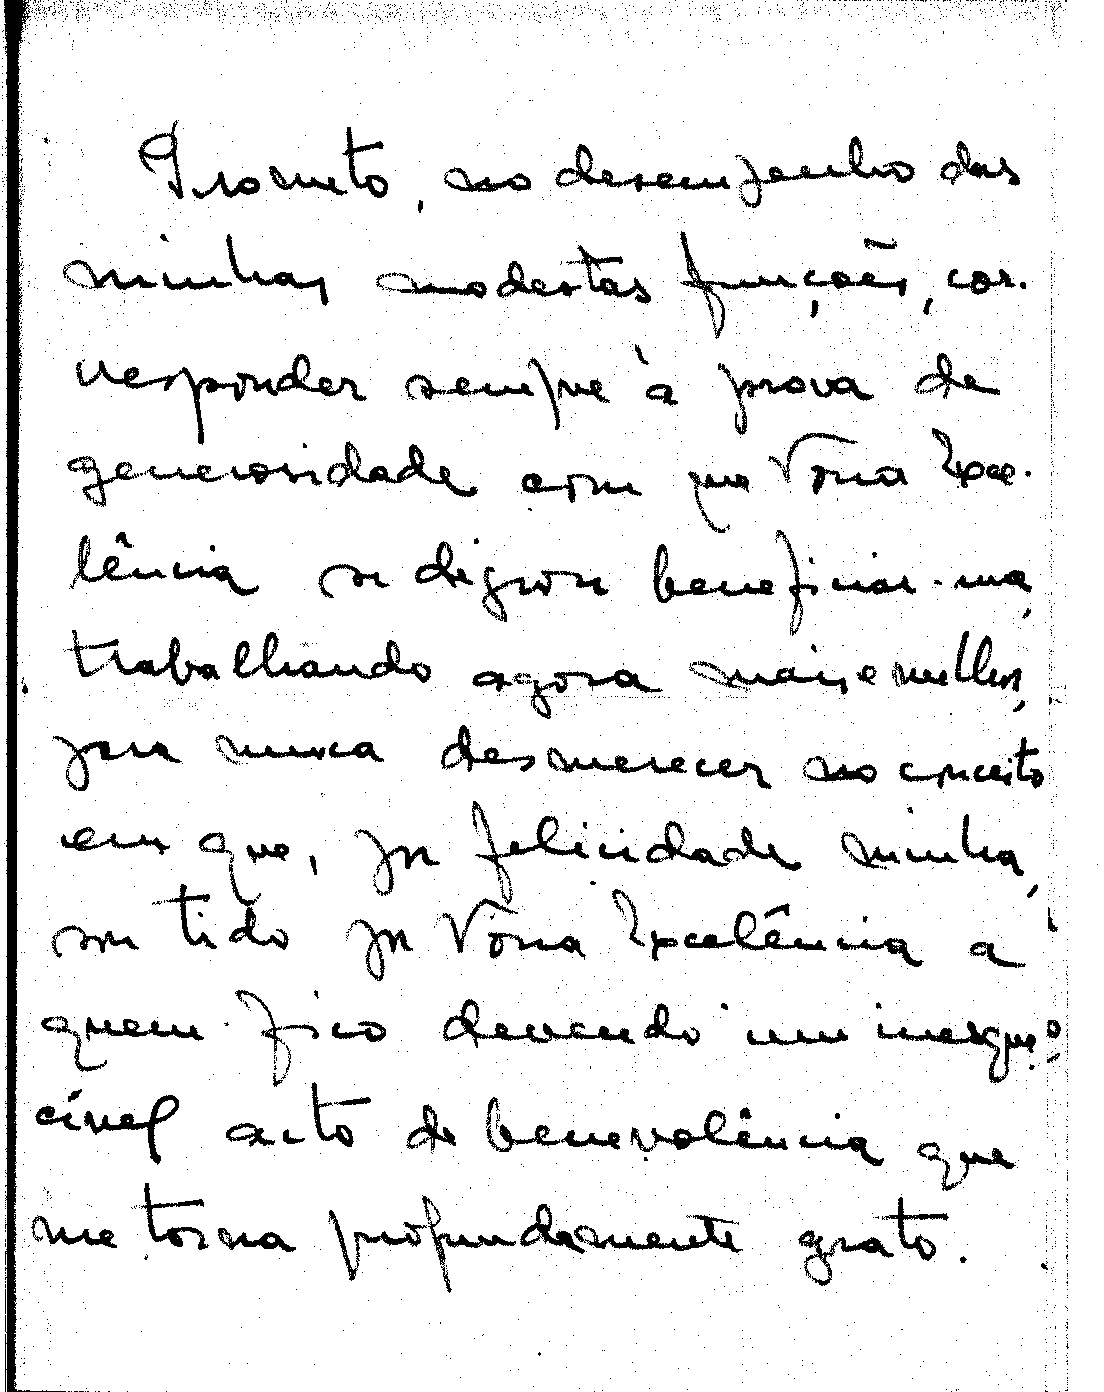 Prometo, no desempenho das
minhas modestas funções, cor-
responder sempre à prova de
generosidade com que Vossa Exce-
lência se dignou beneficiar-me,
trabalhando agora mais e melhor,
para nunca desmerecer no conceito
em que, por felicidade minha,
sou tido por Vossa Excelência a
quem fico devendo um inesque-
cível acto de benevolência que
me torna profundamente grato.